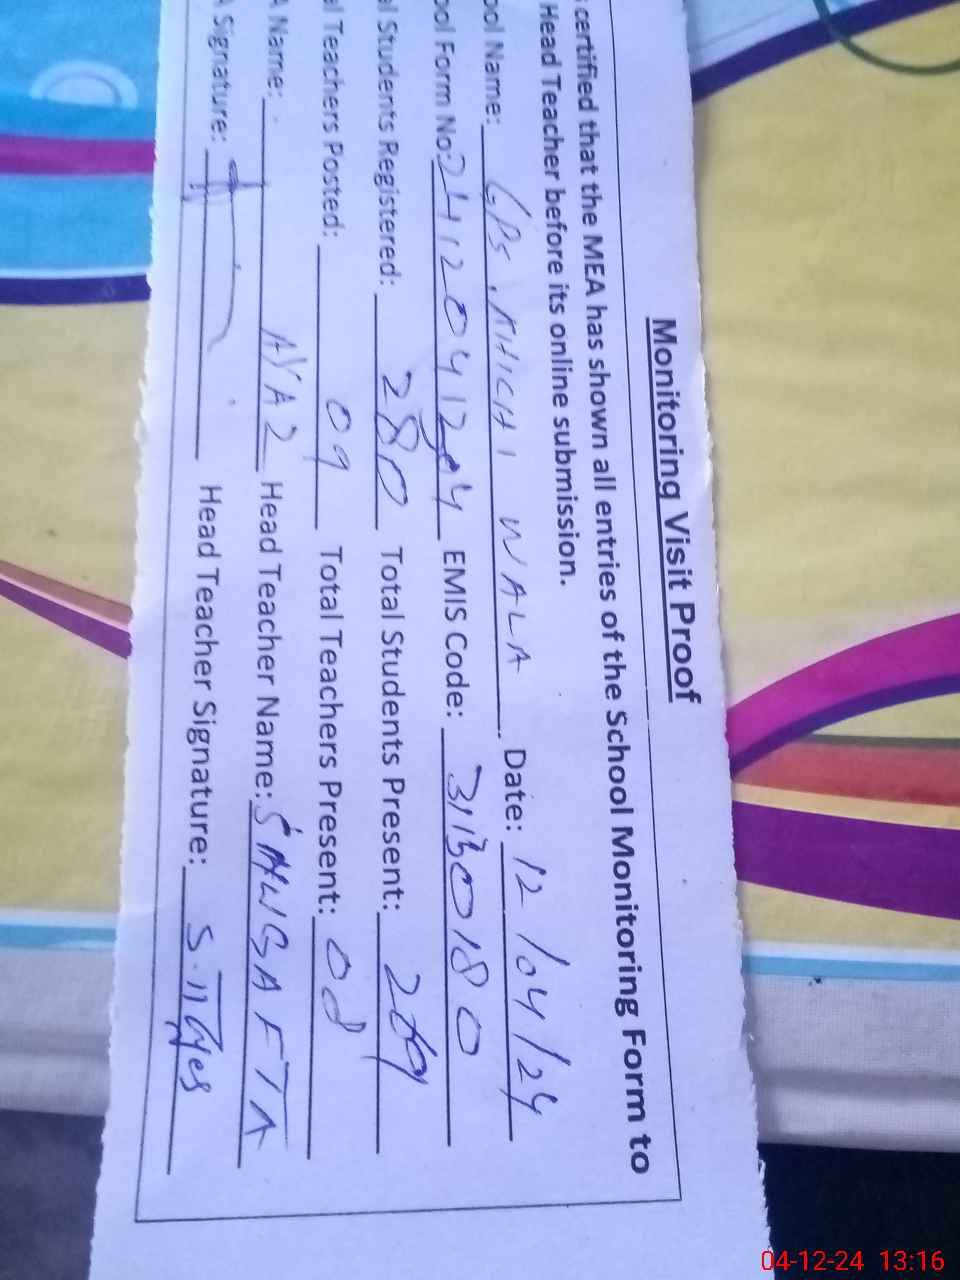 Monitoring Visit Proof
certified that the MEA has shown all entries of the School Monitoring Form to
Head Teacher before its online submission.
ool Name: GPS, KHICHI WALA Date: 12/04/24
ool Form No: EMIS Code: 31130180
l Students Registered: 280 Total Students Present:
al Teachers Posted: 09 Total Teachers Present: 08
A Name: Head Teacher Name:
A Signature: Head Teacher Signature:
04-12-24 13:16